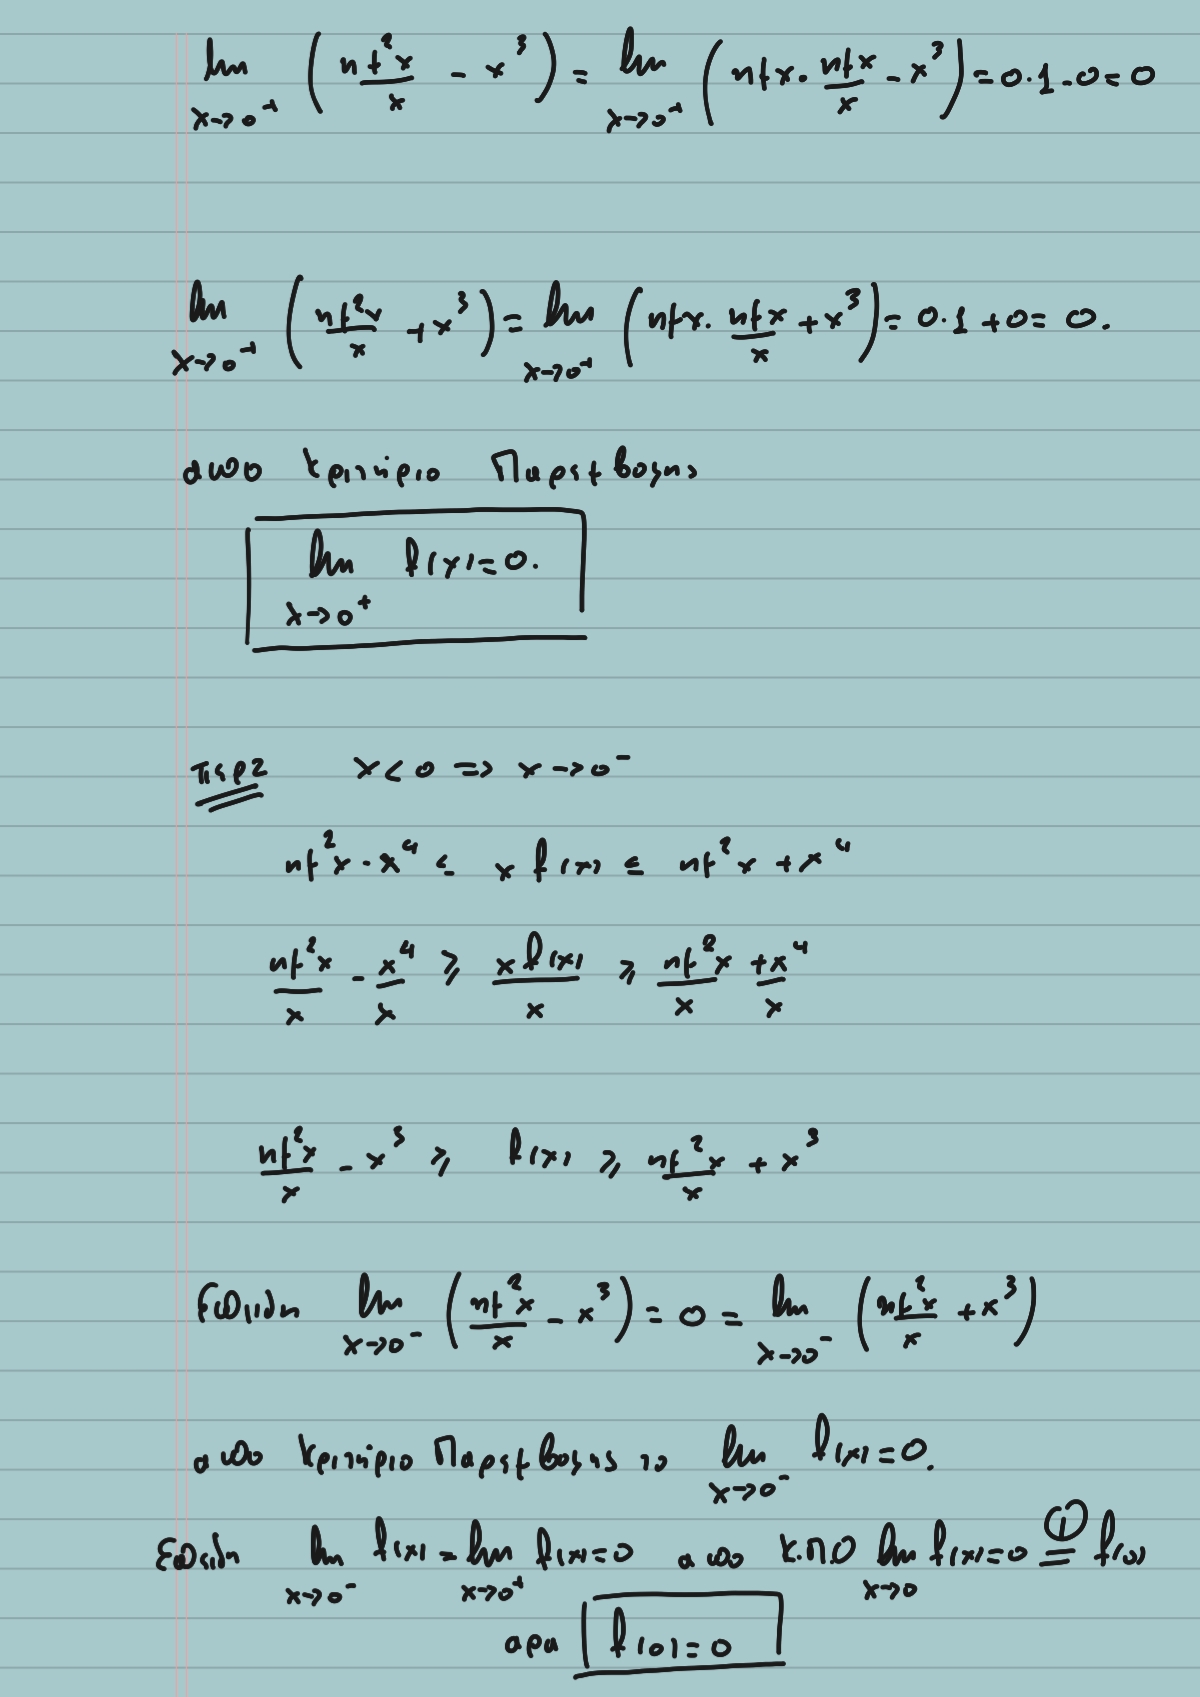 lim x→0⁺ (ημ²x/x - x³) = lim x→0⁺ (ημx · ημx/x - x³) = 0·1-0=0
lim x→0⁺ (ημ²x/x + x³) = lim x→0⁺ (ημx · ημx/x + x³) = 0·1+0=0.
απο Κριτηριο Παρεμβολης
lim x→0⁺ f(x)=0.
περ2 x<0 => x→0⁻
ημ²x - x⁴ ≤ x f(x) ≤ ημ²x + x⁴
ημ²x/x - x⁴/x ≥ x f(x)/x ≥ ημ²x/x + x⁴/x
ημ²x/x - x³ ≥ f(x) ≥ ημ²x/x + x³
Επειδη lim x→0⁻ (ημ²x/x - x³) = 0 = lim x→0⁻ (ημ²x/x + x³)
απο Κριτηριο Παρεμβολης το lim x→0⁻ f(x)=0.
Επειδη lim x→0⁻ f(x) = lim x→0⁺ f(x)=0 απο Κ.Π.Ο lim x→0 f(x)=0 =① f(0)
αρα f(0)=0